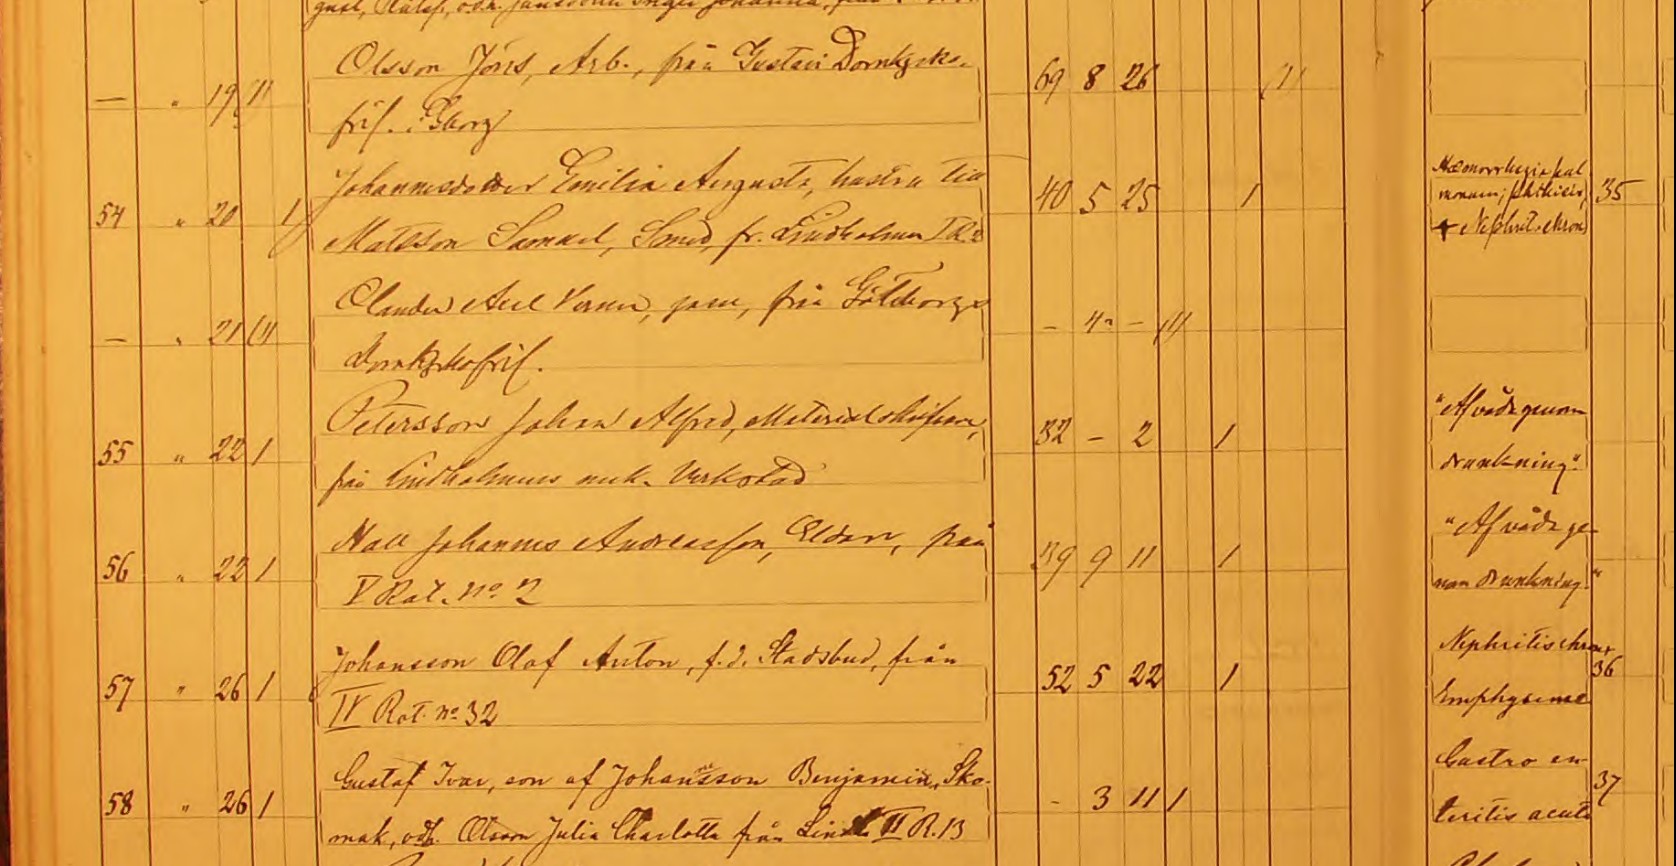 Olsson Jöns, Arb., från Gustavi Domkyrko-
— " 19 (1) 69 8 26 (1)
förs. Gborg
Johannesdotter Emilia Augusta, hustru till Hæmorrhagia pul
54 " 20 1 40 5 25 1 monum; phthisis, 35
Matsson Samuel, Smed, fr. Lindholmen I R. + Nephrit. chron
Olander Axel Verner, från Göteborgs
— " 21 (1) — 4 — (1)
Domkyrkoförs.
Petersson Johan Alfred, Materialskrifvare, "Af våda genom
55 " 22 1 32 — 2 1
från Lindholmens mek. Verkstad drunkning".
Hall Johannes Andreasson, Eldare, från "Af våda ge-
56 " 22 1 39 9 11 1
V Rot. No. 2 nom drunkning."
Johansson Olof Anton, f.d. Stadsbud, från Nephritis chron +
57 " 26 1 52 5 22 1 36
IV Rot. No 32 Emphysema
Gustaf Ivar, son af Johansson Benjamin, Sko- Gastro en-
58 " 26 1 - 3 11 1 37
mak, och Olsson Julia Charlotta från II R. 13 teritis acuta